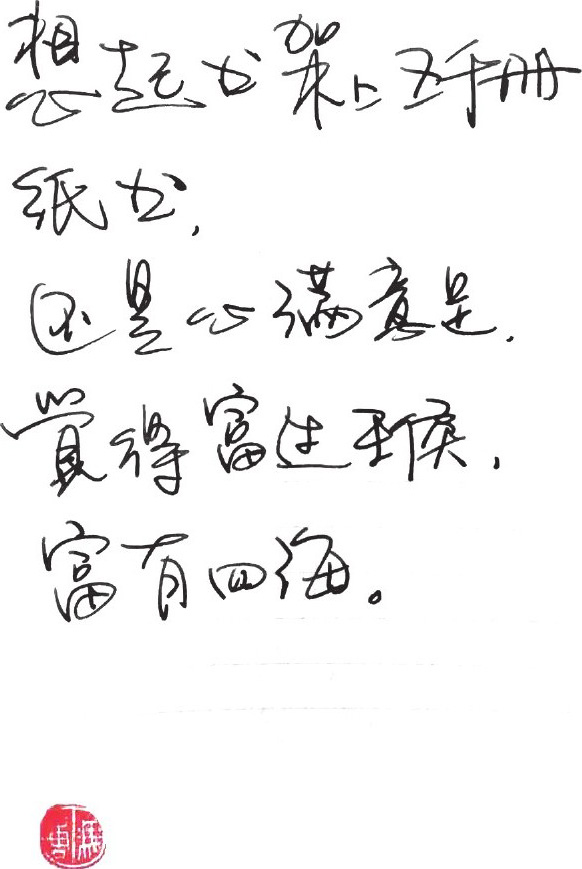 想起书架上五千册
纸书,
还是心满意足,
觉得富过王侯,
富有四海。